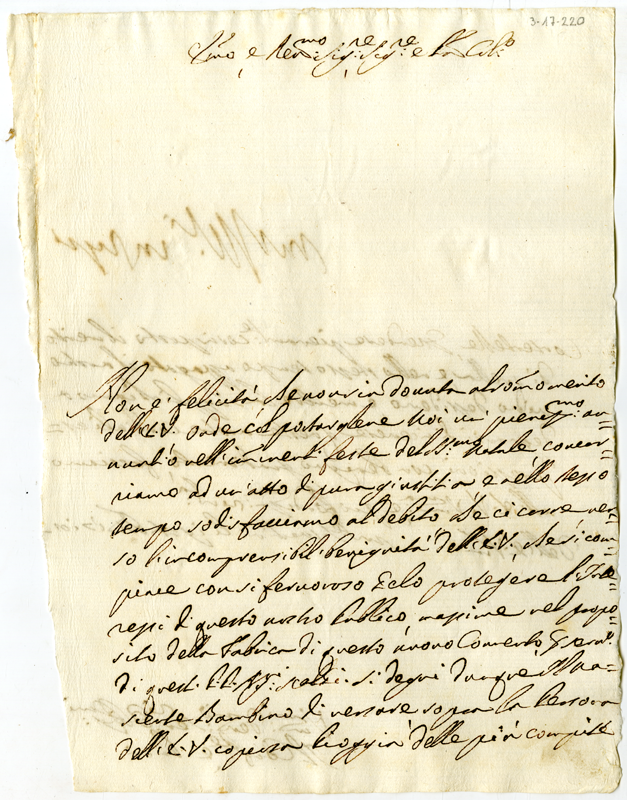 3-17-220
Ill.mo e Rev.mo Sig.re Sig.re e P.rone Col.mo
Non è felicità che non sia dovuta al s̃omo merito
dell'E.V. onde col portarglene Noi un pieniss.mo an=
nuntio nell'imminenti feste del SS.mo Natale concor=
riamo ad un'atto di pura giustitia e nello stesso
tempo sodisfacciamo al debito che ci corre ver=
so l'incomprensibil benignità dell'E.V. che si com=
piace con si fervoroso Zelo protegere l'Inte=
ressi di questo nostro Publico, massime nel propo=
sito della Fabrica di questo nuovo Convento
di questi
si degni dunque il Na=
scente Bambino di versare sopra la Persona
dell'E.V. copiosa pioggia delle più compite